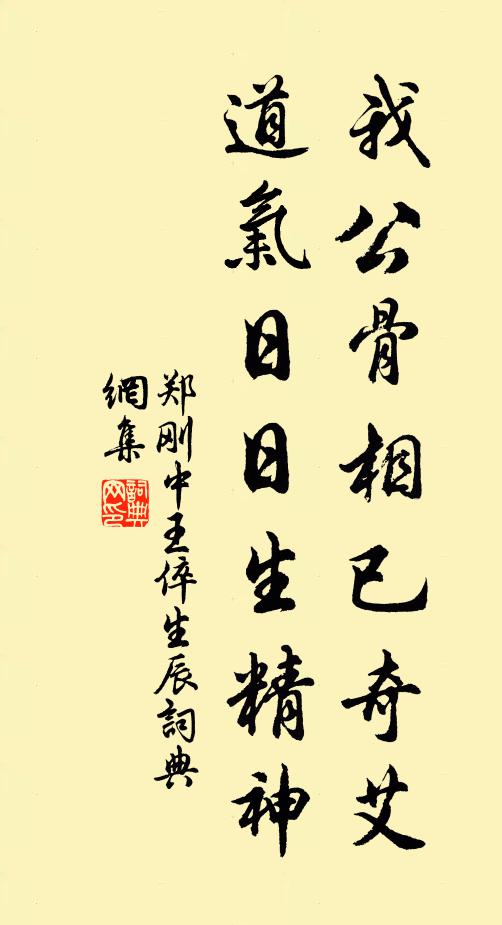 我公骨相已奇艾
道氣日日生精神
郑刚中王倅生辰詞典
網集
詞典網印